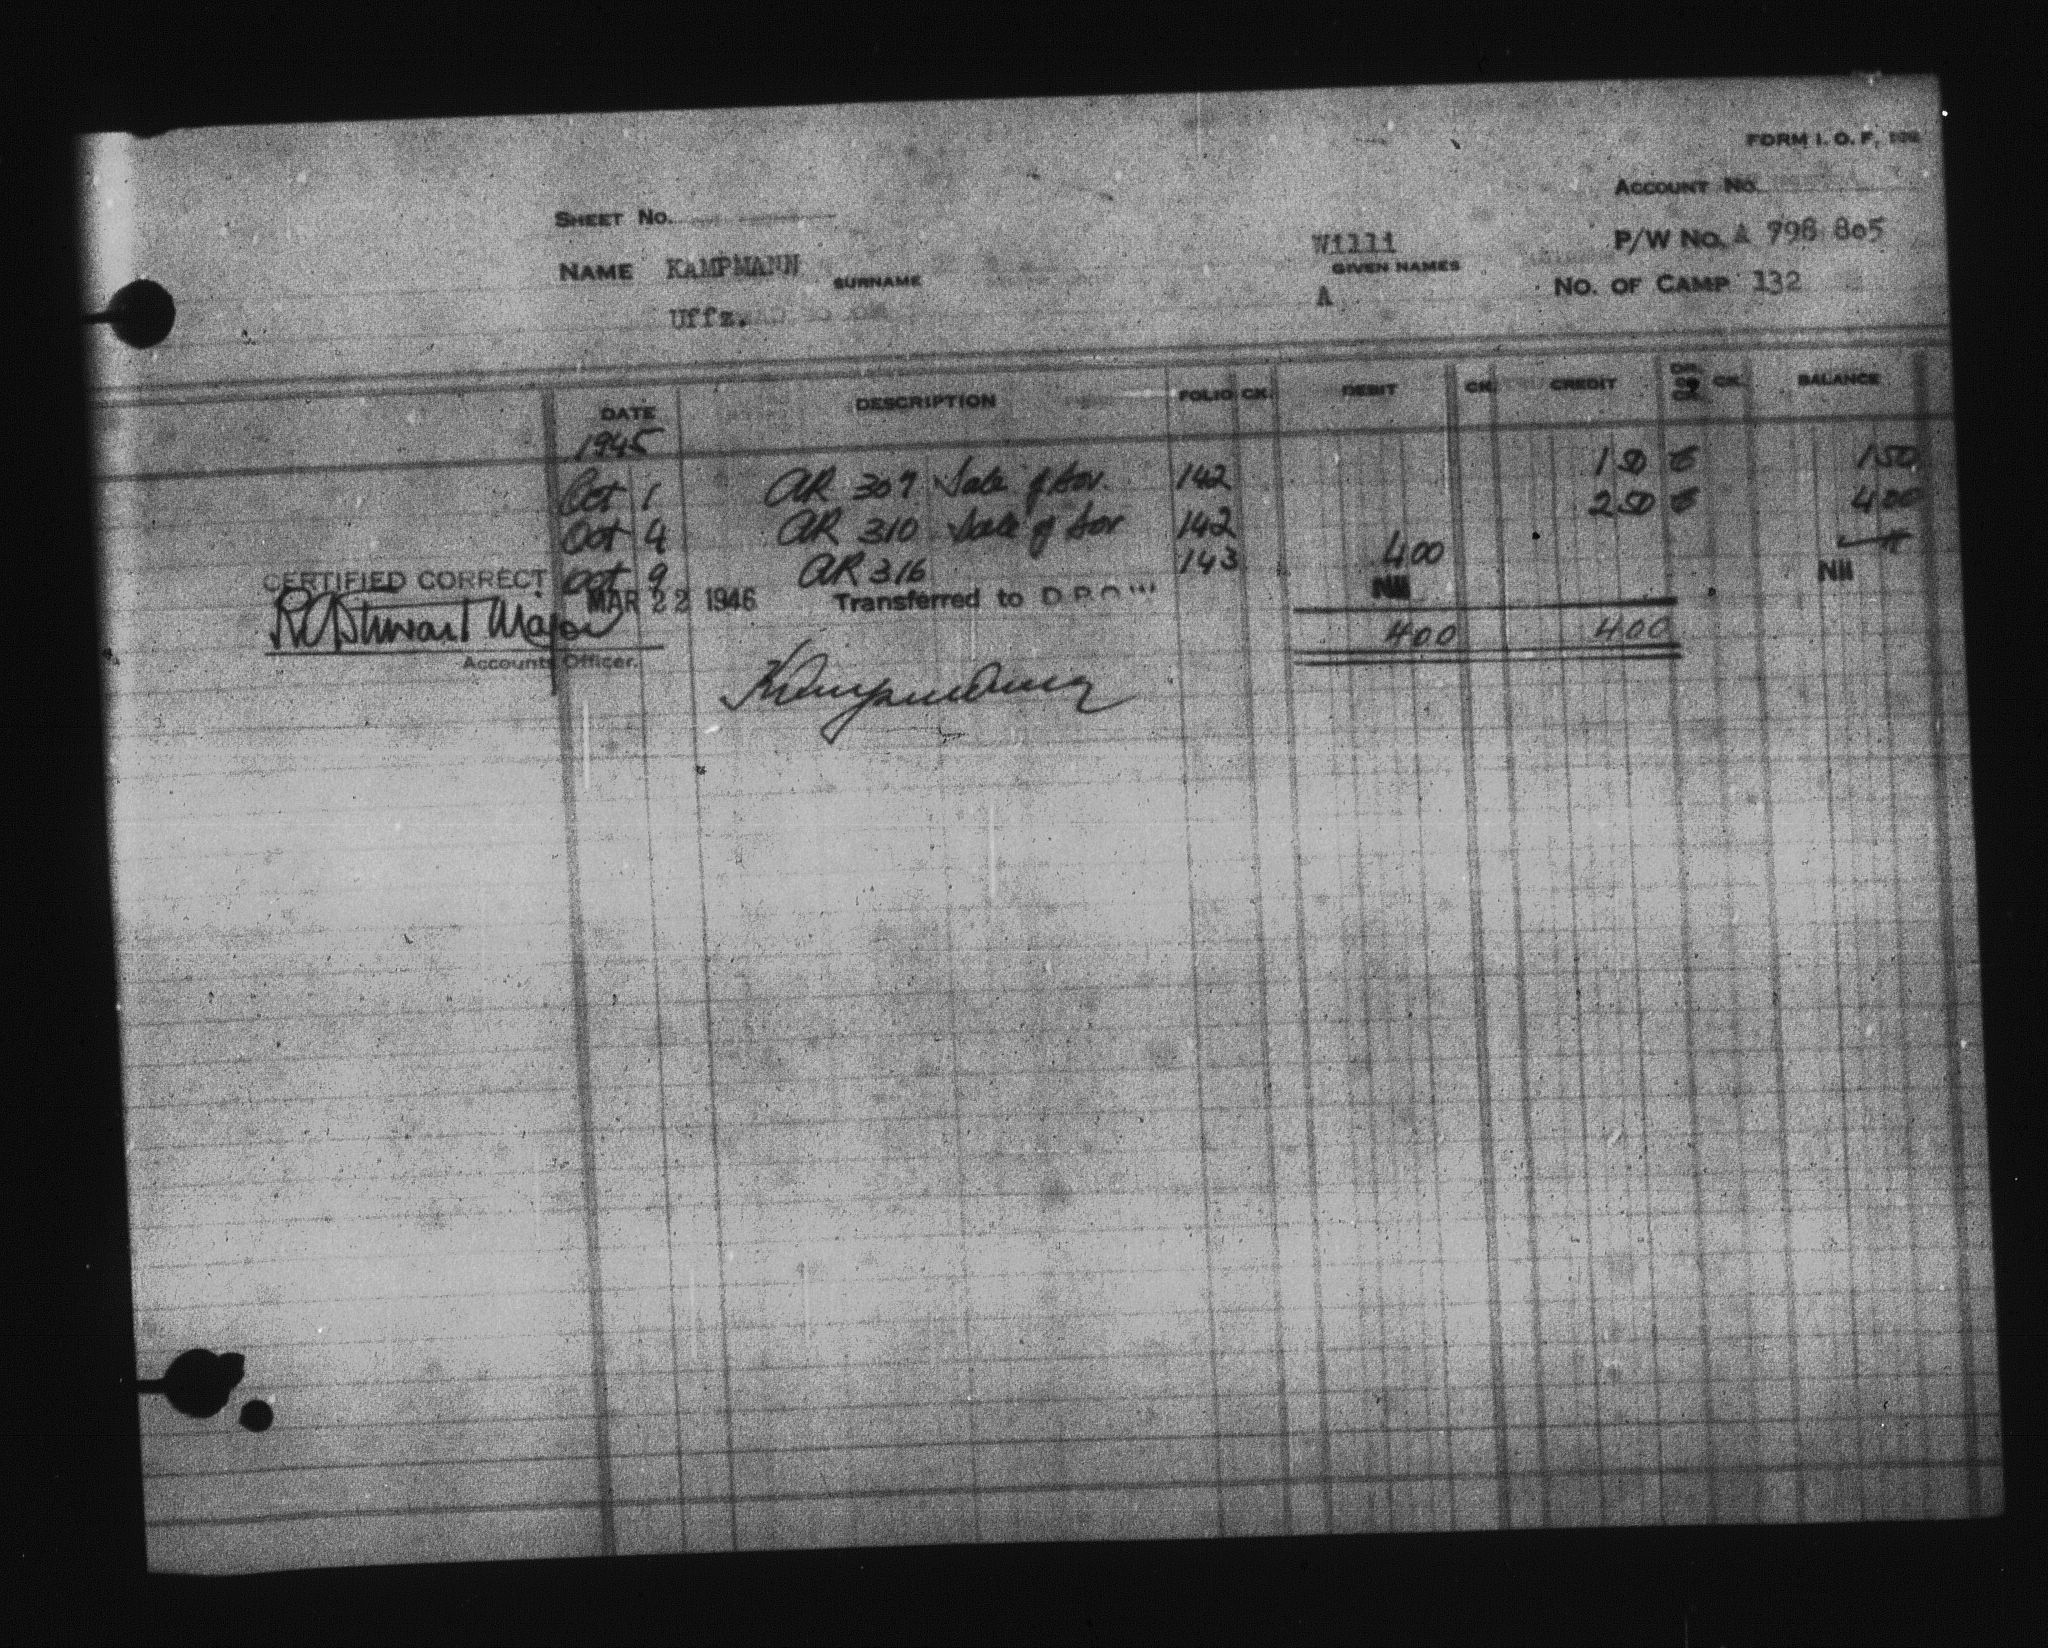 FORM I. O. F.
ACCOUNT No.
SHEET No.
P/W No. A 798 805
NAME KAMPMANN SURNAME
Willi GIVEN NAMES
NO. OF CAMP 132
Uffz.
A
DATE DESCRIPTION FOLIO CK. DEBIT CK. CREDIT DR. OR CR. CK. BALANCE
1945
Oct 1 AR 309 Sale of 142 1 50 C 1 50
Oct 4 AR 310 Sale of 142 2 50 C 4 00
Oct 9 AR 316 143 4 00
CERTIFIED CORRECT
MAR 22 1946 Transferred to Nil Nil
Major
4 00 4 00
Accounts Officer.
Kampmann